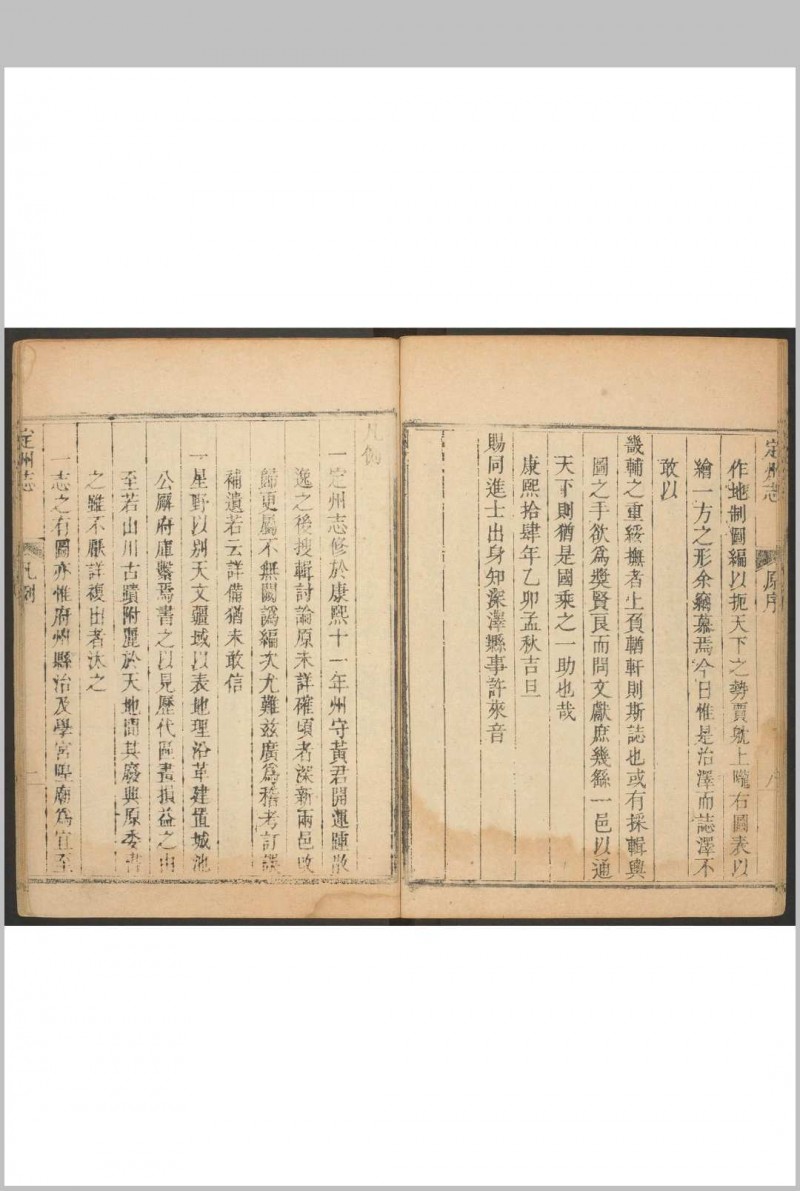 定州志
原序
八
作地制圖編以扼天下之勢賈躭上隴右圖表以
繪一方之形余竊慕焉今日惟是治澤而誌澤不
敢以
畿輔之重綏撫者上頁輶軒則斯誌也或有採輯輿
圖之手欲為獎賢良而問文獻庶幾繇一邑以通
天下則猶是國乘之一助也哉
康熙拾肆年乙卯孟秋吉旦
賜同進士出身知深澤縣事許來音
凡例
一定州志修於康熙十一年州守黃君開運踵散
逸之後搜輯討論原未詳確頃者深新兩邑改
歸更屬不無闕譌編次尤難兹廣為稽考訂誤
補遺若云詳備猶未敢信
一星野以別天文疆域以表地理沿革建置城池
公廨府庫繫焉書之以見歷代區畫損益之由
至若山川古蹟附麗於天地間其廢興原委書
之雖不厭詳複出者汰之
一志之有圖亦惟府州縣治及學宮壇廟為宜至
定州志
凡例
一